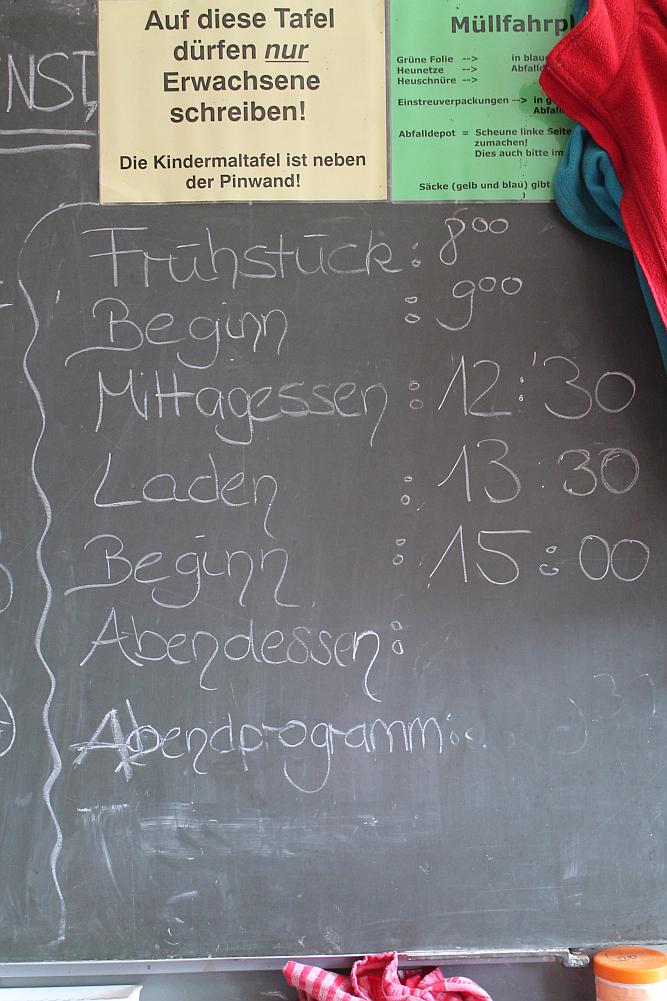 Auf diese Tafel
dürfen nur
Erwachsene
schreiben!
Die Kindermaltafel ist neben
der Pinwand!
Müllfahrpl
Grüne Folie --> in blau
Heunetze --> Abfalld
Heuschnüre -->
Einstreuverpackungen --> in g
Abfall
Abfalldepot = Scheune linke Seite
zumachen!
Dies auch bitte im
Säcke (gelb und blau) gibt
NST
Frühstück: 8 00
Beginn : 9 00
Mittagessen : 12:30
Laden : 13:30
Beginn : 15:00
Abendessen:
Abendprogramm: